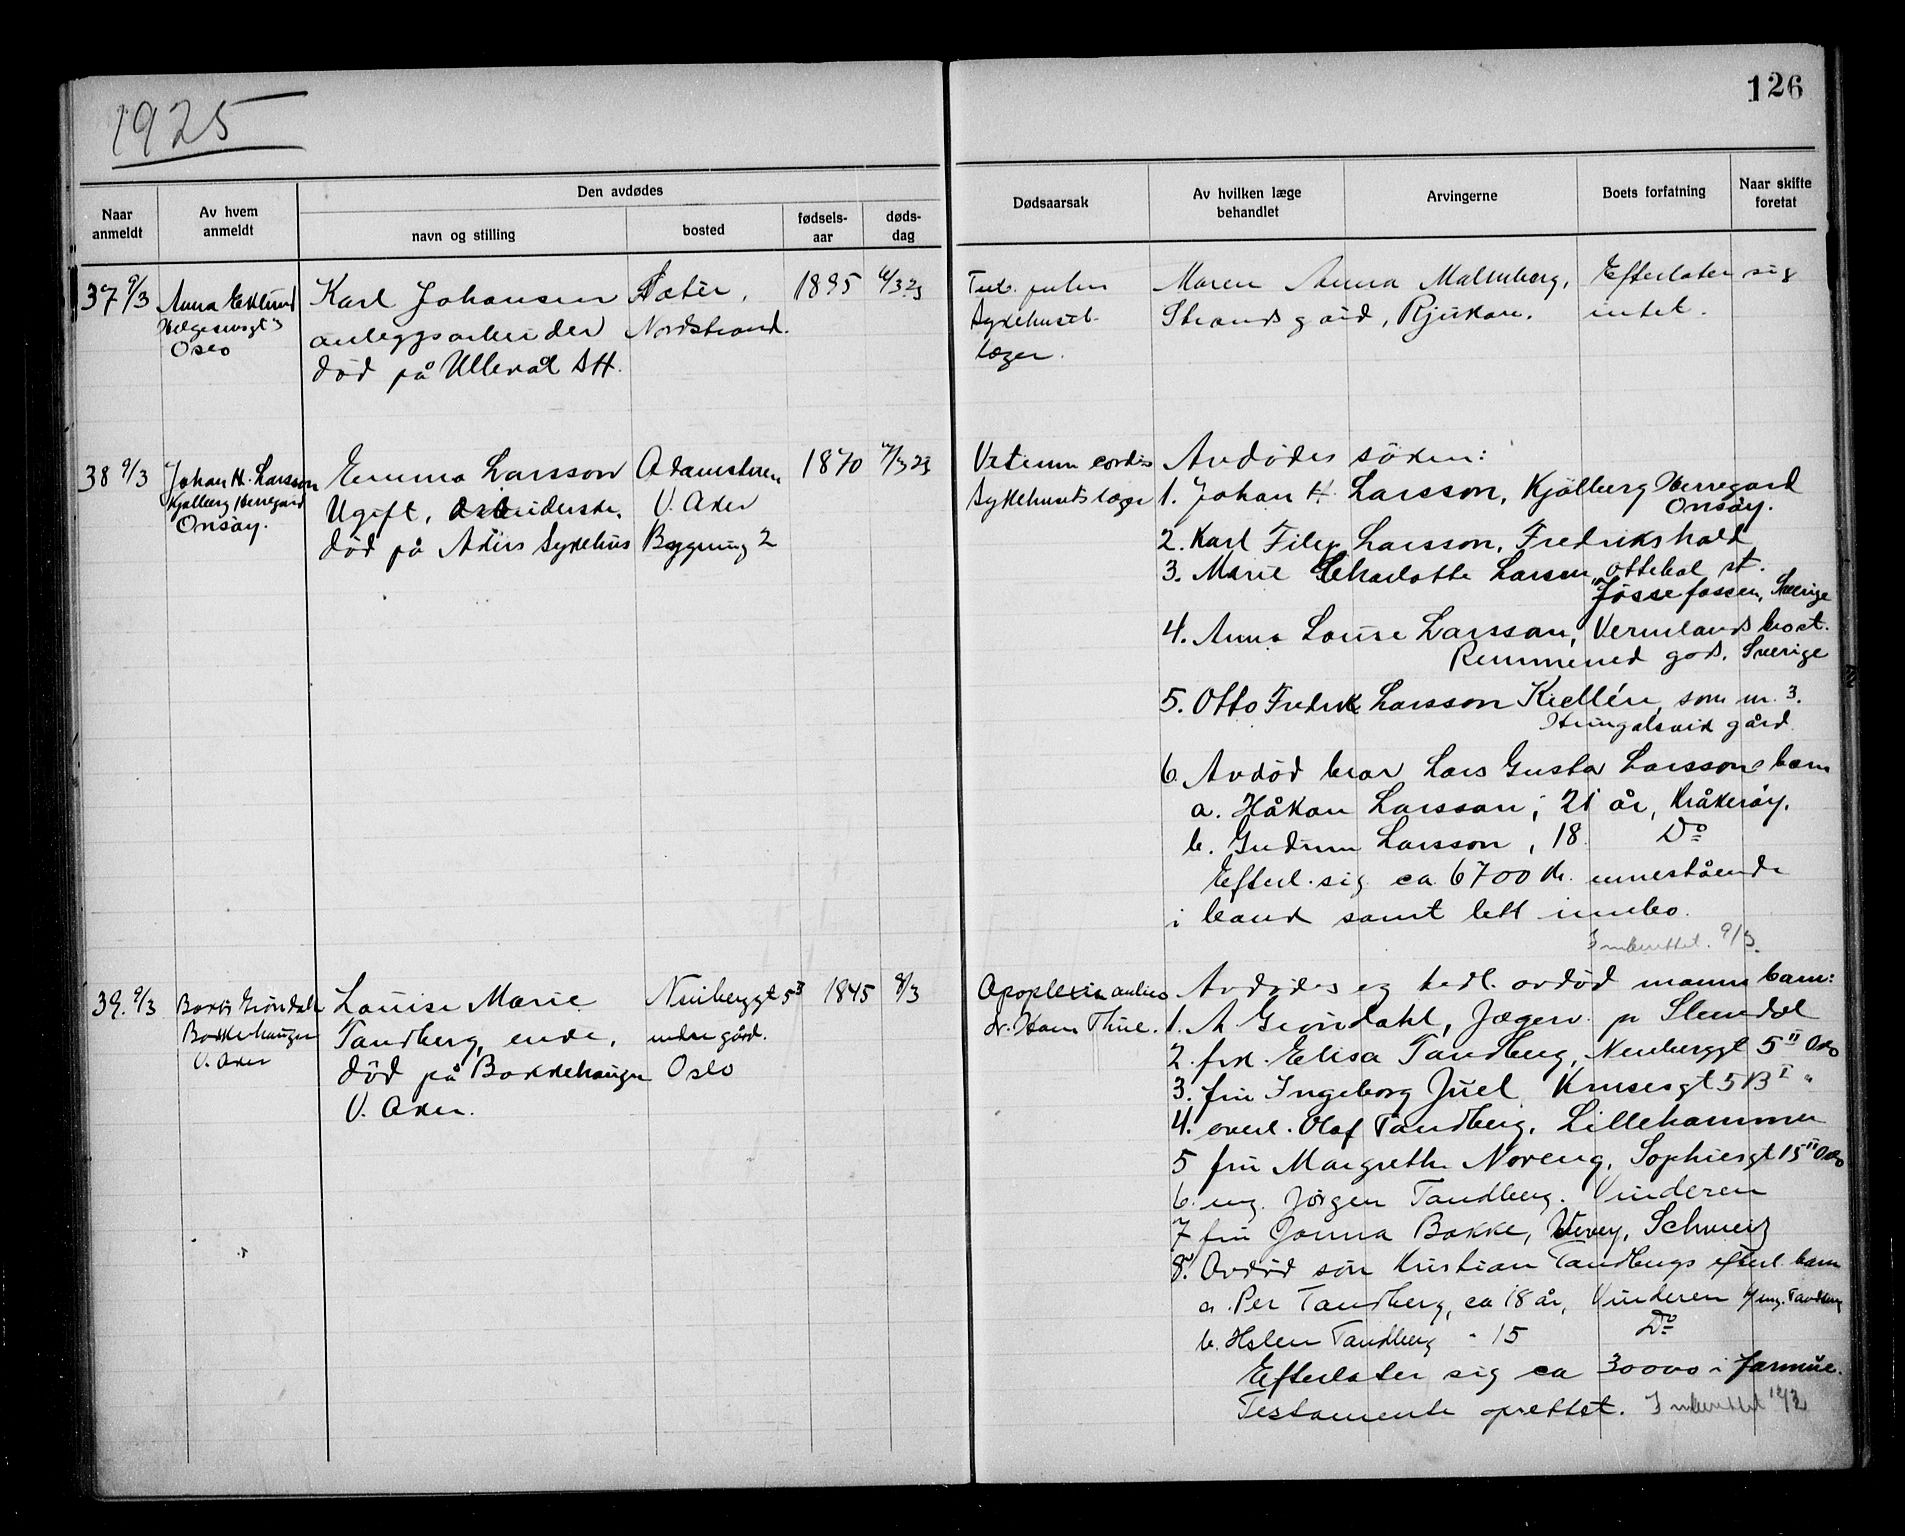 1925
126
Den avdødes
Naar anmeldt
Av hvem anmeldt
navn og stilling
bosted
fødsels-aar
døds-dag
Dødsaarsak
Av hvilken læge behandlet
Arvingerne
Boets forfatning
Naar skifte foretat
37 9/3 Anna Eklund Karl Johansen Sæter, 1895
Oslo anleggsarbeider Nordstrand.
død på Ullevål SH.
Tub. pulm
Sykehusets
læger.
Maren Anna Malmberg, Efterlater sig
Strandsgård, Rjukan. intet.
38 9/3 Johan H. Larsson Emma Larsson Adamstuen 1870
Kjølberg Herregård Ugift, arbeiderske, V. Aker
Onsøy. død på Akers sykehus Bygning 2
Vitium cordis
Sykehusets læger
Avdødes søsken:
1. Johan H. Larsson, Kjølberg Herregård
Onsøy.
2. Karl Filip Larsson, Fredrikshald
3. Marie Charlotte Larsen, Ottebol st.
Jössefossen, Sverige
4. Anna Louise Larsson, Vermlands bro st.
gods, Sverige
5. Otto Fredrik Larsson Kiellén, som nr. 3.
gård.
6. Avdød bror Lars Gustav Larssons barn
a. Håkon Larsson, 21 år, Kråkerøy.
b. Gudrun Larsson, 18 Do
Efterl. sig ca. 6700 kr. innestående
i bank samt litt innbo.
Innberettet 9/3.
39. 9/3 Grøndahl Louise Marie Neuberggt 5 3 1845 8/3
Bakkehaugen Tandberg, enke, nedre gård.
V. Aker død på Bakkehaugen Oslo
V. Aker.
Apoplexia
dr. Thue.
Avdødes og tidl. avdød manns barn:
1. A Grøndahl, Jægerv. pr Slemdal
2. frk. Elisa Tandberg, Neuberggt 5 II Oslo
3. fru Ingeborg Juel, Krusesgt 5B I "
4. overl. Olaf Tandberg, Lillehammer
5 fru Margrethe Noreng, Sophiesgt 15 II Oslo
6. ing. Jørgen Tandberg. Vinderen
7 fru Jonna Bakke, Vevey, Schweiz
8. Avdød søn Kristian Tandbergs efterl. barn
a. Per Tandberg, ca 18 år, Vinderen v/ ing. Tandberg
b. Helen Tandberg - 15 Do
Efterlater sig ca 30000 i formue.
Testamente oprettet. Innberettet 12/3